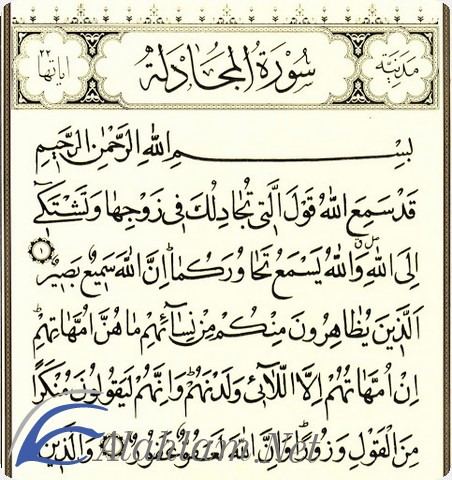 مدنية سورة المجادلة اياتها ٢٢
بسم الله الرحمن الرحيم
قد سمع الله قول التي تجادلك في زوجها وتشتكي
الى الله والله يسمع تحاوركما ان الله سميع بصير ١
الذين يظاهرون منكم من نسائهم ما هن امهاتهم
ان امهاتهم الا اللائي ولدنهم وانهم ليقولون منكرا
من القول وزورا وان الله لعفو غفور والذين
Alahlam.Net